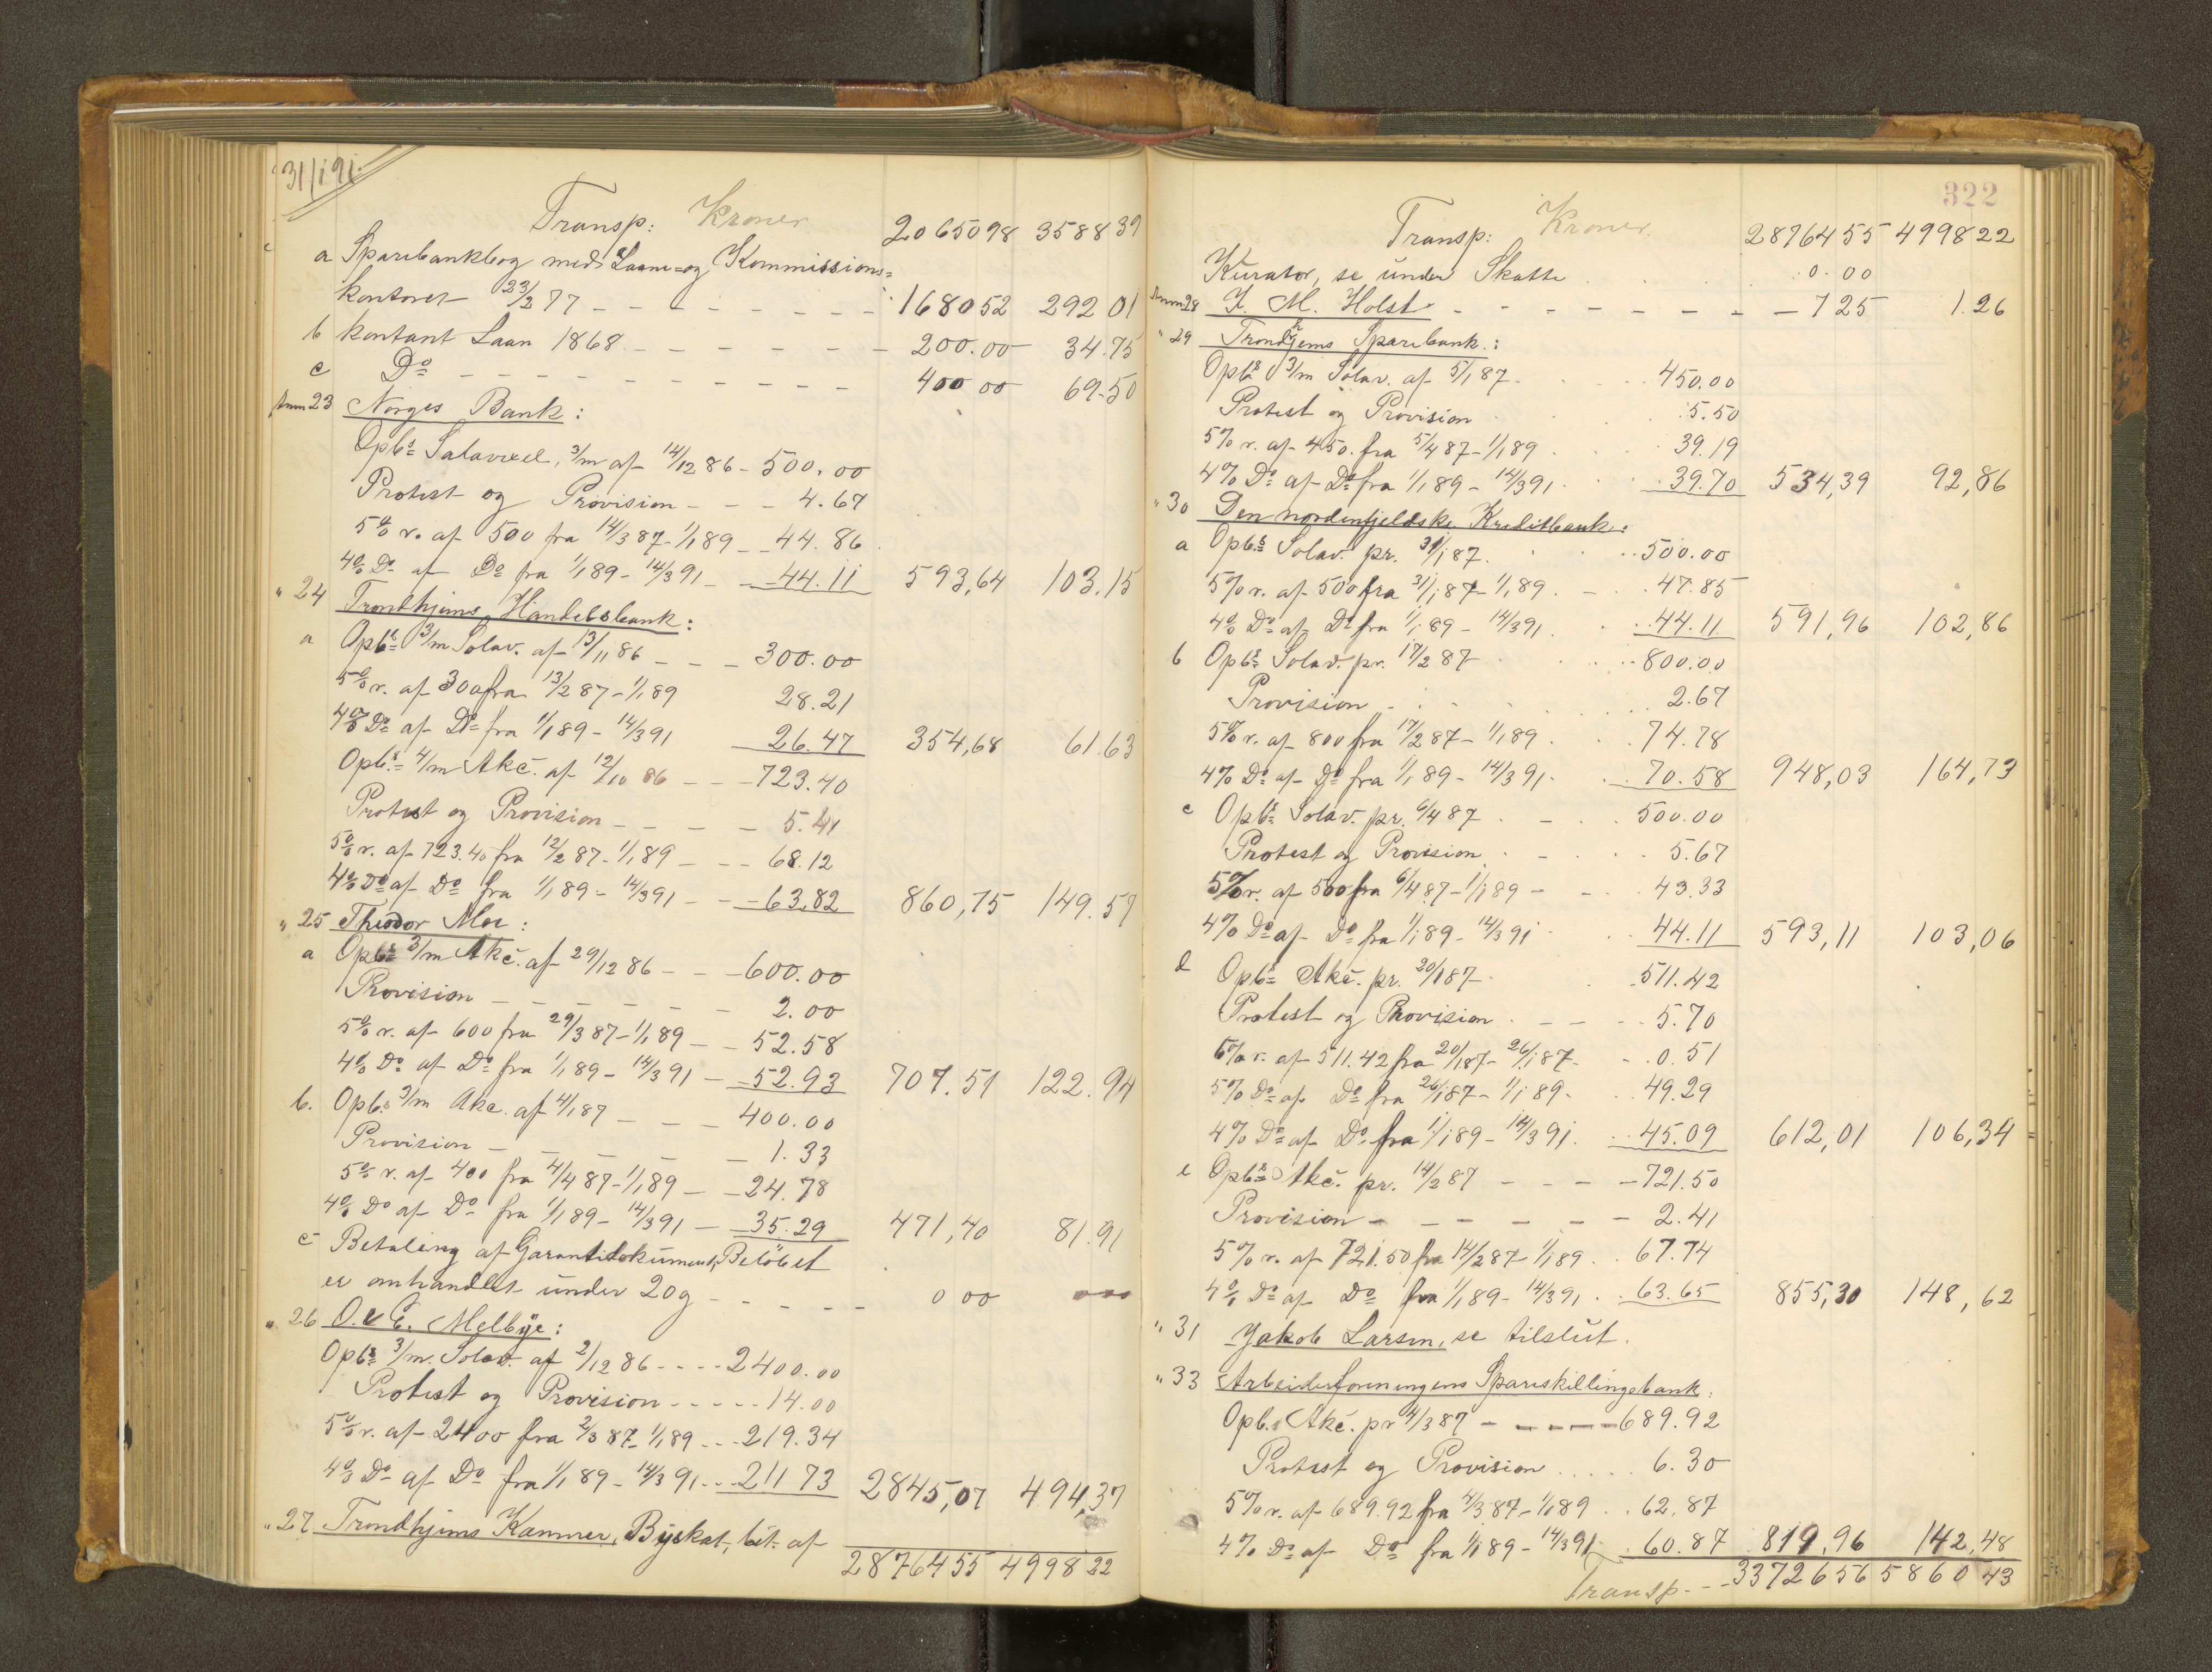 31/1 91.
Transp: Kroner 20650 98 3588 39
a Sparebankbog med Laane- og Kommissions-
kontoret 23/2 77 - - - 1680 52 292 01
b kontant Laan 1868 - - - 200.00 34.75
c Do - - - 400 00 69.50
Anm 23 Norges Bank:
Opbs Solavexel, 3/m af 14/12 86 - 500.00
Protest og Provision - - - 4.67
5% r. af 500 fra 14/3 87 - 1/1 89 - - 44.86
4% Do af Do fra 1/1 89 - 14/3 91 - - 44.11 593,64 103.15
" 24 Trondhjems Handelsbank:
a Opbs 3/m Solav. af 13/11 86 - - - 300.00
5% r. af 300 fra 13/2 87 - 1/1 89 28.21
4% Do af Do fra 1/1 89 - 14/3 91 26.47 354,68 61.63
Opbs 4/m Akc. af 12/10 86 - - - 723.40
Protest og Provision - - - - 5.41
5% r. af 723.40 fra 12/2 87 - 1/1 89 - - - 68.12
4% Do af Do fra 1/1 89 - 14/3 91 - - - 63.82 860,75 149.57
" 25 Theodor Moe:
a Opbs 3/m Akc. af 29/12 86 - - - 600.00
Provision - - - - - - 2.00
5% r. af 600 fra 29/3 87 - 1/1 89 - - 52.58
4% Do af Do fra 1/1 89 - 14/3 91 - 52.93 707.51 122.94
b. Opbs 3/m Akc. af 4/1 87 - - - 400.00
Provision - - - - - 1.33
5% r. af 400 fra 4/4 87 - 1/1 89 - - 24.78
4% Do af Do fra 1/1 89 - 14/3 91 - 35.29 471,40 81.91
c Betaling af Garantidokument, Beløbet
er omhandlet under 20g - - - - - 0 00 0 00
" 26 O. & E. Melbye:
Opbs 3/m. Solav. af 2/12 86 - - - - 2400.00
Protest og Provision - - - - - 14.00
5% r. af 2400 fra 2/3 87 - 1/1 89 - - - 219.34
4% Do af Do fra 1/1 89 - 14/3 91 - - - 211 73 2845,07 494,37
" 27 Trondhjems Kæmner, Byskat, bet. af
28764 55 4998 22
322
Transp: Kroner. 28764 55 4998 22
Kurator, se under Skatte . . . 0.00
Anm 28 J. M. Holst - - - - - - - - 7 25 1.26
" 29 Trondhjems Sparebank:
Opbs 3/m Solav. af 5/1 87. . . 450.00
Protest og Provision . . 5.50
5% r. af 450. fra 5/4 87 - 1/1 89 . . 39.19
4% Do af Do fra 1/1 89 - 14/3 91 . . . 39.70 534,39 92,86
" 30 Den nordenfjeldske Kreditbank:
a Opbs Solav. pr. 31/1 87. . . . 500.00
5% r. af 500 fra 31/1 87 - 1/1 89 . - . . 47.85
4% Do af Do fra 1/1 89 - 14/3 91. . . . 44.11 591,96 102,86
b Opbs Solav. pr. 17/2 87 . . . . 800.00
Provision - . . . . . . 2.67
5% r. af 800 fra 17/2 87 - 1/1 89 . . . 74.78
4% Do af Do fra 1/1 89 - 14/3 91 . . 70.58 948,03 164,73
c Opbs Solav. pr. 6/4 87 . - . . 500.00
Protest og Provision . - . . 5.67
5% r. af 500 fra 6/4 87 - 1/1 89 - - . . 43.33
4% Do af Do fra 1/1 89 - 14/3 91 . . . 44.11 593,11 103,06
d Opbs Akc. pr. 20/1 87 . . . 511.42
Protest og Provision . - - - . 5.70
6% r. af 511.42 fra 20/1 87 - 26/1 87 - - . 0.51
5% Do af Do fra 26/1 87 - 1/1 89 - . . 49.29
4% Do af Do fra 1/1 89 - 14/3 91. . . . 45.09 612,01 106,34
e Opbs Akc. pr. 14/2 87 - - - - - 721.50
Provision - - - - - - 2.41
5% r. af 721.50 fra 14/2 87 - 1/1 89 . . 67.74
4% Do af Do fra 1/1 89 - 14/3 91 . . 63.65 855,30 148,62
" 31 Jakob Larsen, se tilslut.
" 33 Arbeiderforeningens Spareskillingsbank:
Opbs Akc. pr 4/3 87 - - - - - - 689.92
Protest og Provision . . . . . 6.30
5% r. af 689.92 fra 4/3 87 - 1/1 89 . . 62.87
4% Do af Do fra 1/1 89 - 14/3 91 . 60.87 819,96 142,48
Transp. - - 33726 56 5860 43